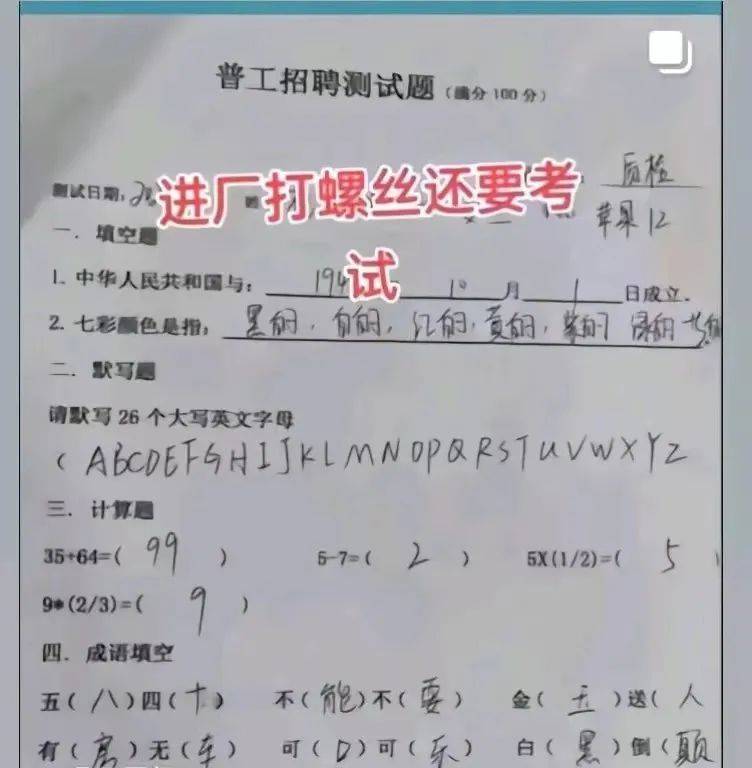 普工招聘测试题(满分100分)
质检
测试日期:
进厂打螺丝还要考
苹果12
试
一. 填空题
1. 中华人民共和国与: 194 10 月 1 日成立.
2. 七彩颜色是指, 黑的, 白的, 红的, 黄的, 紫的 绿的
二. 默写题
请默写26个大写英文字母
( ABCDEFGHIJKLMNOPQRSTUVWXYZ
三. 计算题
35+64=( 99 ) 5-7=( 2 ) 5X(1/2)=( 5
9*(2/3)=( 9 )
四. 成语填空
五(八)四(十) 不(能)不(要) 金(五)送(人
有(房)无(车) 可(口)可(乐) 白(黑)倒(颠